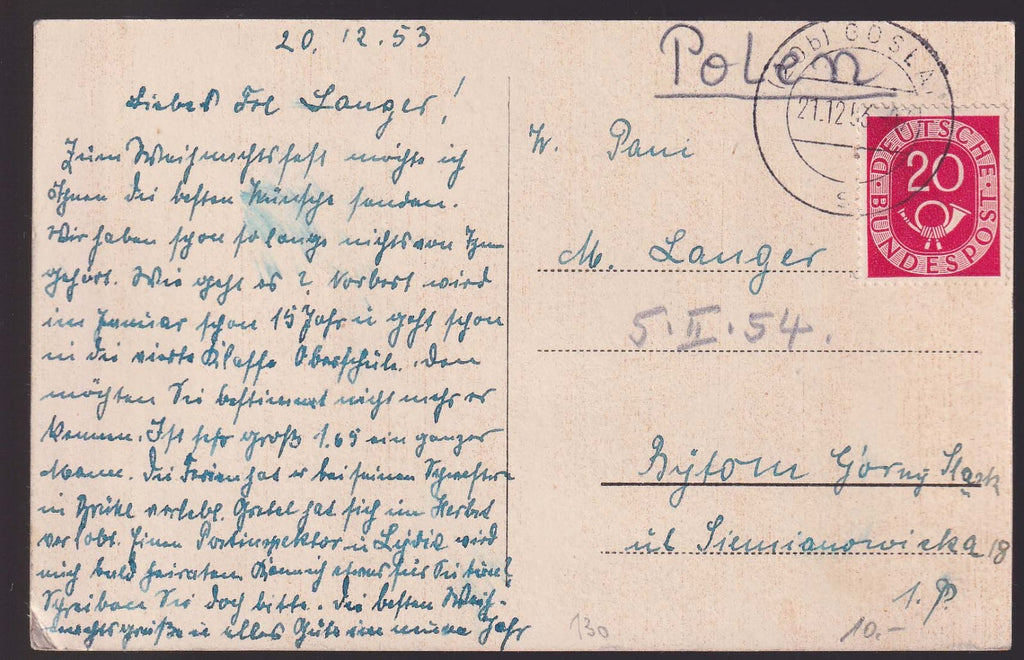 20. 12. 53
Liebes Frl Langer!
Zum Weihnachtsfest möchte ich
Ihnen die besten Wünsche senden.
Wir haben schon so lange nichts von Ihnen
gehört. Wie geht es ? Norbert wird
im Januar schon 15 Jahr u geht schon
in die vierte Klasse Oberschule. Den
möchten Sie bestimmt nicht mehr er
kennen. Ist sehr groß 1.65 ein ganzer
Mann. Die Ferien hat er bei seinen Schwestern
in verlebt. Gretel hat sich im Herbst
verlobt. Einen Postinspektor u wird
auch bald heiraten. Kann ich etwas für Sie tun?
Schreiben Sie doch bitte. Die besten Weih-
nachtsgrüße u alles Gute im neuen Jahr
Polen
GOSLAR
21.12.53
DEUTSCHE BUNDESPOST
20
W. Pani
M. Langer
5.II.54.
Bytom Górny Śląsk
ul Siemianowicka 18
1. P
130
10.-